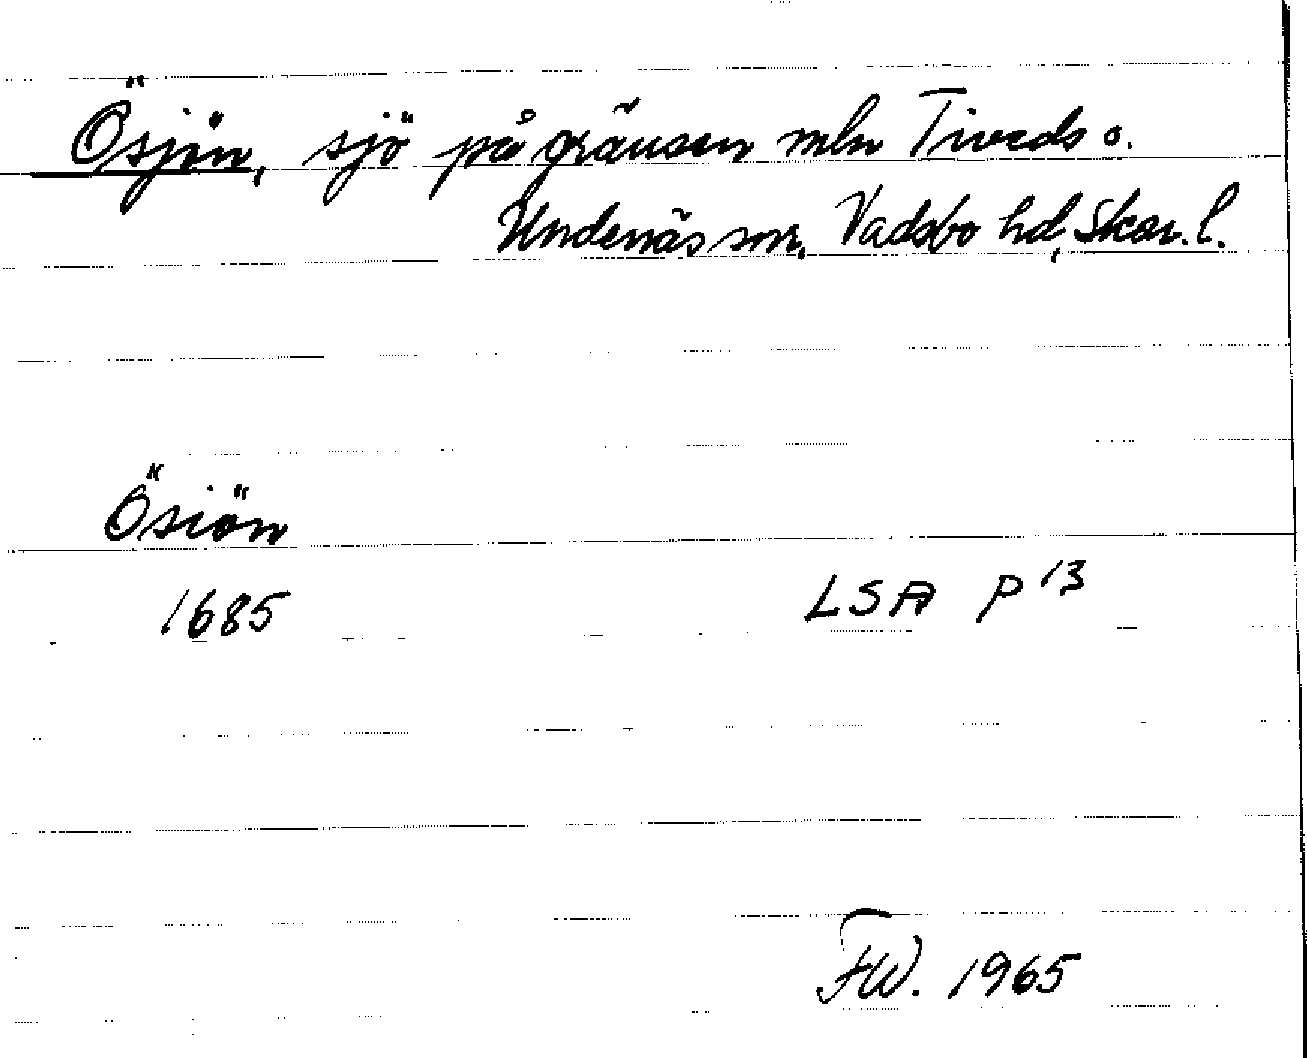 Ösjön, sjö på gränsen mln Tiveds o.
Undenäs snr, Vadsbo hd, Skar. l.
Ösiön
1685 LSA P 13
FW. 1965